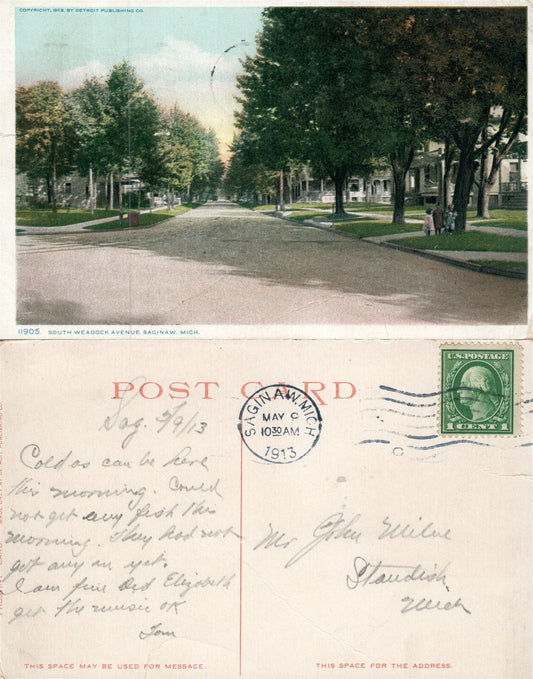 COPYRIGHT, 1908, BY DETROIT PUBLISHING CO.
11905. SOUTH WEADOCK AVENUE, SAGINAW, MICH.
POST CARD
U.S. POSTAGE
1 CENT 1
SAGINAW, MICH.
MAY 9
10 30 AM
1913
Sag. 5/9/13
Cold as can be here
this morning. Could
not get any fish this
morning. They had not
got any in yet.
I am fine Did Elizabeth
get the music OK
Tom
Mr John Milne
Standish
Mich
THIS SPACE MAY BE USED FOR MESSAGE.
THIS SPACE IS FOR THE ADDRESS.